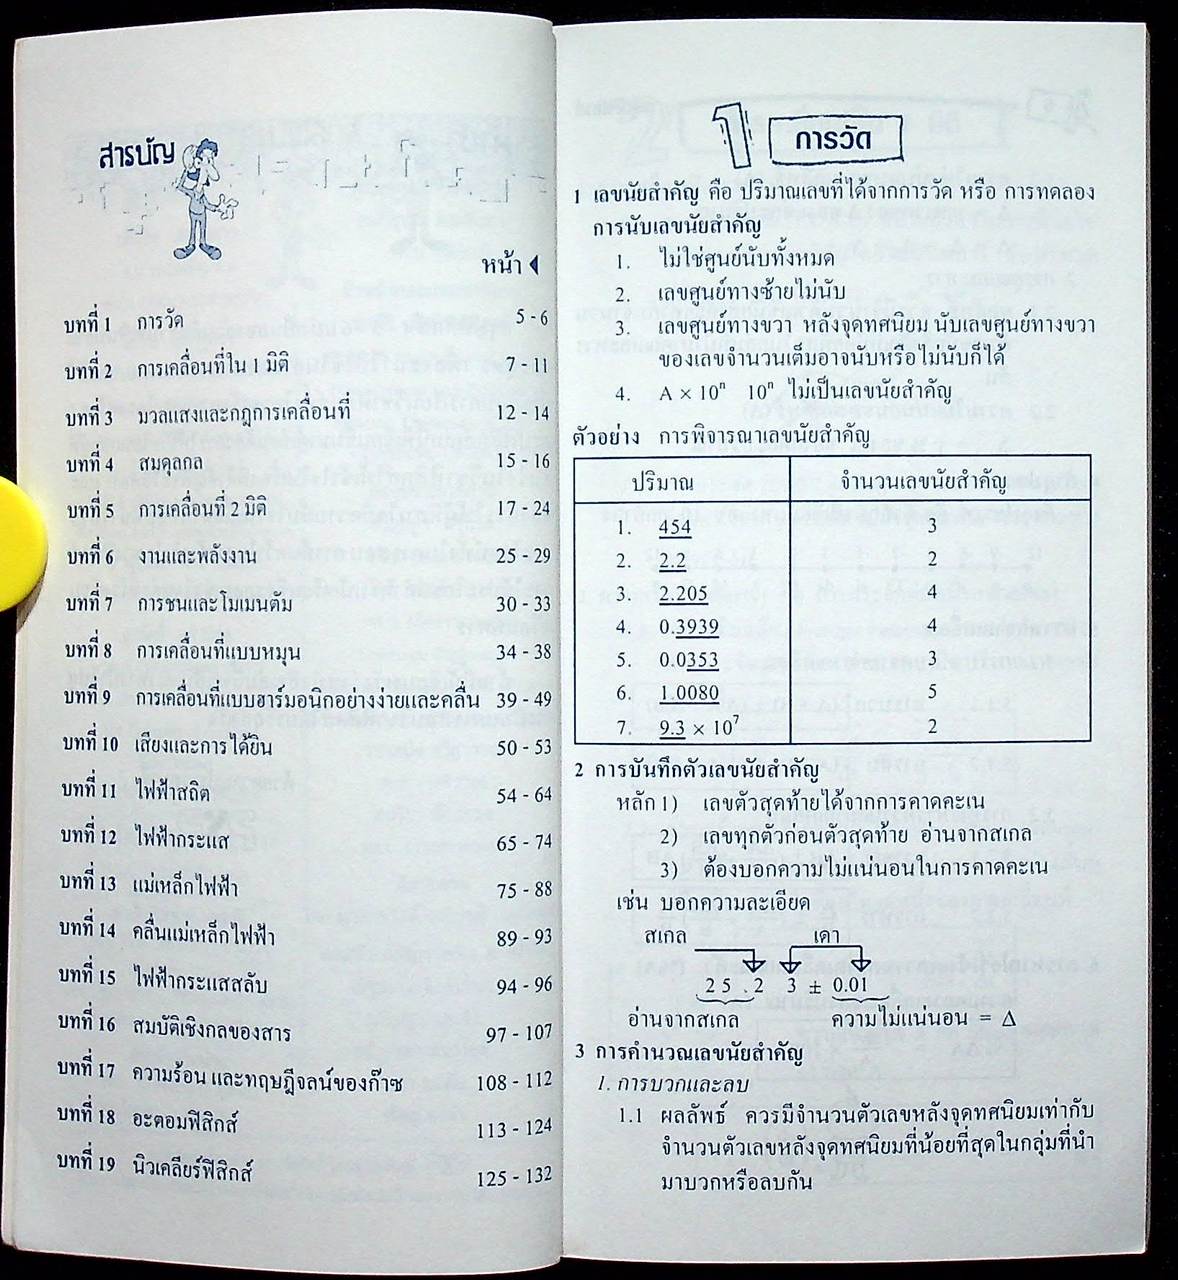 สารบัญ
หน้า
บทที่ 1 การวัด 5 - 6
บทที่ 2 การเคลื่อนที่ใน 1 มิติ 7 - 11
บทที่ 3 มวลแสงและกฎการเคลื่อนที่ 12 - 14
บทที่ 4 สมดุลกล 15 - 16
บทที่ 5 การเคลื่อนที่ 2 มิติ 17 - 24
บทที่ 6 งานและพลังงาน 25 - 29
บทที่ 7 การชนและโมเมนตัม 30 - 33
บทที่ 8 การเคลื่อนที่แบบหมุน 34 - 38
บทที่ 9 การเคลื่อนที่แบบฮาร์มอนิกอย่างง่ายและคลื่น 39 - 49
บทที่ 10 เสียงและการได้ยิน 50 - 53
บทที่ 11 ไฟฟ้าสถิต 54 - 64
บทที่ 12 ไฟฟ้ากระแส 65 - 74
บทที่ 13 แม่เหล็กไฟฟ้า 75 - 88
บทที่ 14 คลื่นแม่เหล็กไฟฟ้า 89 - 93
บทที่ 15 ไฟฟ้ากระแสสลับ 94 - 96
บทที่ 16 สมบัติเชิงกลของสาร 97 - 107
บทที่ 17 ความร้อน และทฤษฎีจลน์ของก๊าซ 108 - 112
บทที่ 18 อะตอมฟิสิกส์ 113 - 124
บทที่ 19 นิวเคลียร์ฟิสิกส์ 125 - 132
1 การวัด
1 เลขนัยสำคัญ คือ ปริมาณเลขที่ได้จากการวัด หรือ การทดลอง
การนับเลขนัยสำคัญ
1. ไม่ใช่ศูนย์นับทั้งหมด
2. เลขศูนย์ทางซ้ายไม่นับ
3. เลขศูนย์ทางขวา หลังจุดทศนิยม นับเลขศูนย์ทางขวา
ของเลขจำนวนเต็มอาจนับหรือไม่นับก็ได้
4. A × 10ⁿ 10ⁿ ไม่เป็นเลขนัยสำคัญ
ตัวอย่าง การพิจารณาเลขนัยสำคัญ
ปริมาณ จำนวนเลขนัยสำคัญ
1. 454 3
2. 2.2 2
3. 2.205 4
4. 0.3939 4
5. 0.0353 3
6. 1.0080 5
7. 9.3 × 10⁷ 2
2 การบันทึกตัวเลขนัยสำคัญ
หลัก 1) เลขตัวสุดท้ายได้จากการคาดคะเน
2) เลขทุกตัวก่อนตัวสุดท้าย อ่านจากสเกล
3) ต้องบอกความไม่แน่นอนในการคาดคะเน
เช่น บอกความละเอียด
สเกล เดา
2 5 . 2 3 ± 0.01
อ่านจากสเกล ความไม่แน่นอน = Δ
3 การคำนวณเลขนัยสำคัญ
1. การบวกและลบ
1.1 ผลลัพธ์ ควรมีจำนวนตัวเลขหลังจุดทศนิยมเท่ากับ
จำนวนตัวเลขหลังจุดทศนิยมที่น้อยที่สุดในกลุ่มที่นำ
มาบวกหรือลบกัน